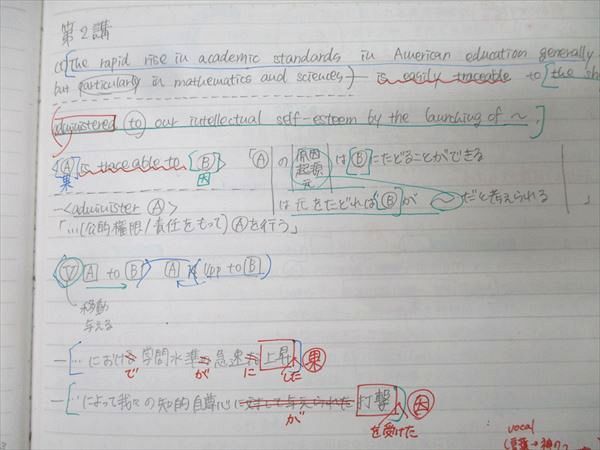 第2講
(1) [The rapid rise in academic standards in American education generally
but particularly in mathematics and sciences] is easily traceable to [the sh
administered to our intellectual self-esteem by the launching of ~.]
[A] is traceable to [B] 「Aの原因 起源 元は[B]にたどることができる
果 因
は元をたどれば[B]が~だと考えられる」
-<administer A>
「…(公的権限/責任をもって)Aを行う」
V A to B A (Vpp to B)
移動
与える
-[…における学問水準の急速な上昇] 果
で が に した
-[…によって我々の知的自尊心に対して与えられた打撃] 因
が を受けた
vocal